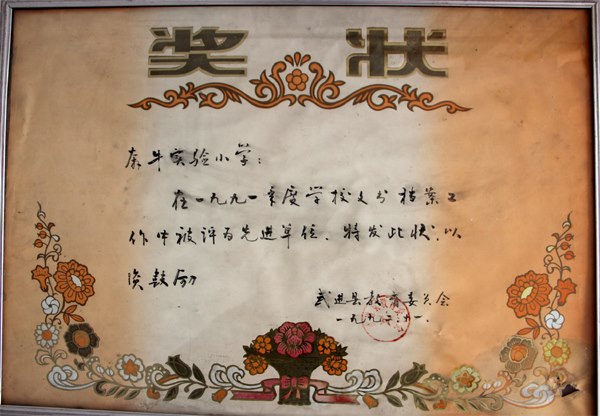 奖状
奔牛实验小学：
在一九九一年度学校文书档案工
作中被评为先进单位、特发此状、以
资鼓励
武进县教育委员会
一九九二.十一.